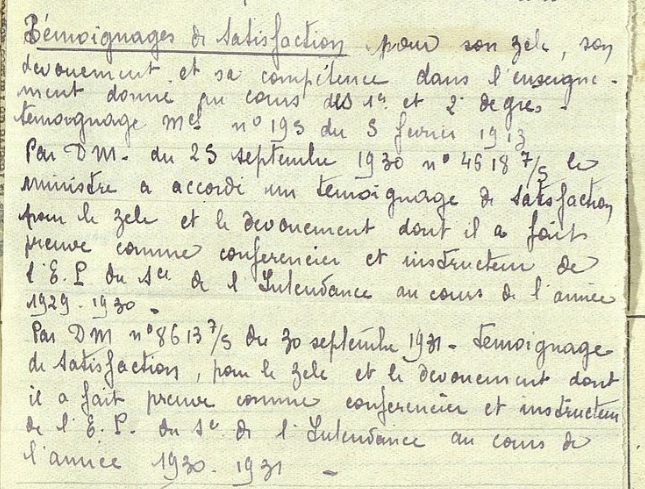 Témoignages de satisfaction pour son zele, son
devouement et sa compétence dans l'enseigne-
ment donné au cours des 1er et 2e degrés -
temoignage Mel n° 195 du 5 fevrier 1913
Par D M. du 25 septembre 1930 n° 4518 7/5 le
ministre a accordé un temoignage de satisfaction
pour le zele et le devouement dont il a faits
preuve comme conferencier et instructeur de
l'E. P du Sce de l'Intendance au cours de l'année
1929-1930.
Par D M n° 8613 7/5 du 30 septembre 1931 - temoignage
de satisfaction, pour le zele et le devouement dont
il a fait preuve comme conferencier et instructeur
de l'E. P. du Sce de l'Intendance au cours de
l'année 1930-1931 -